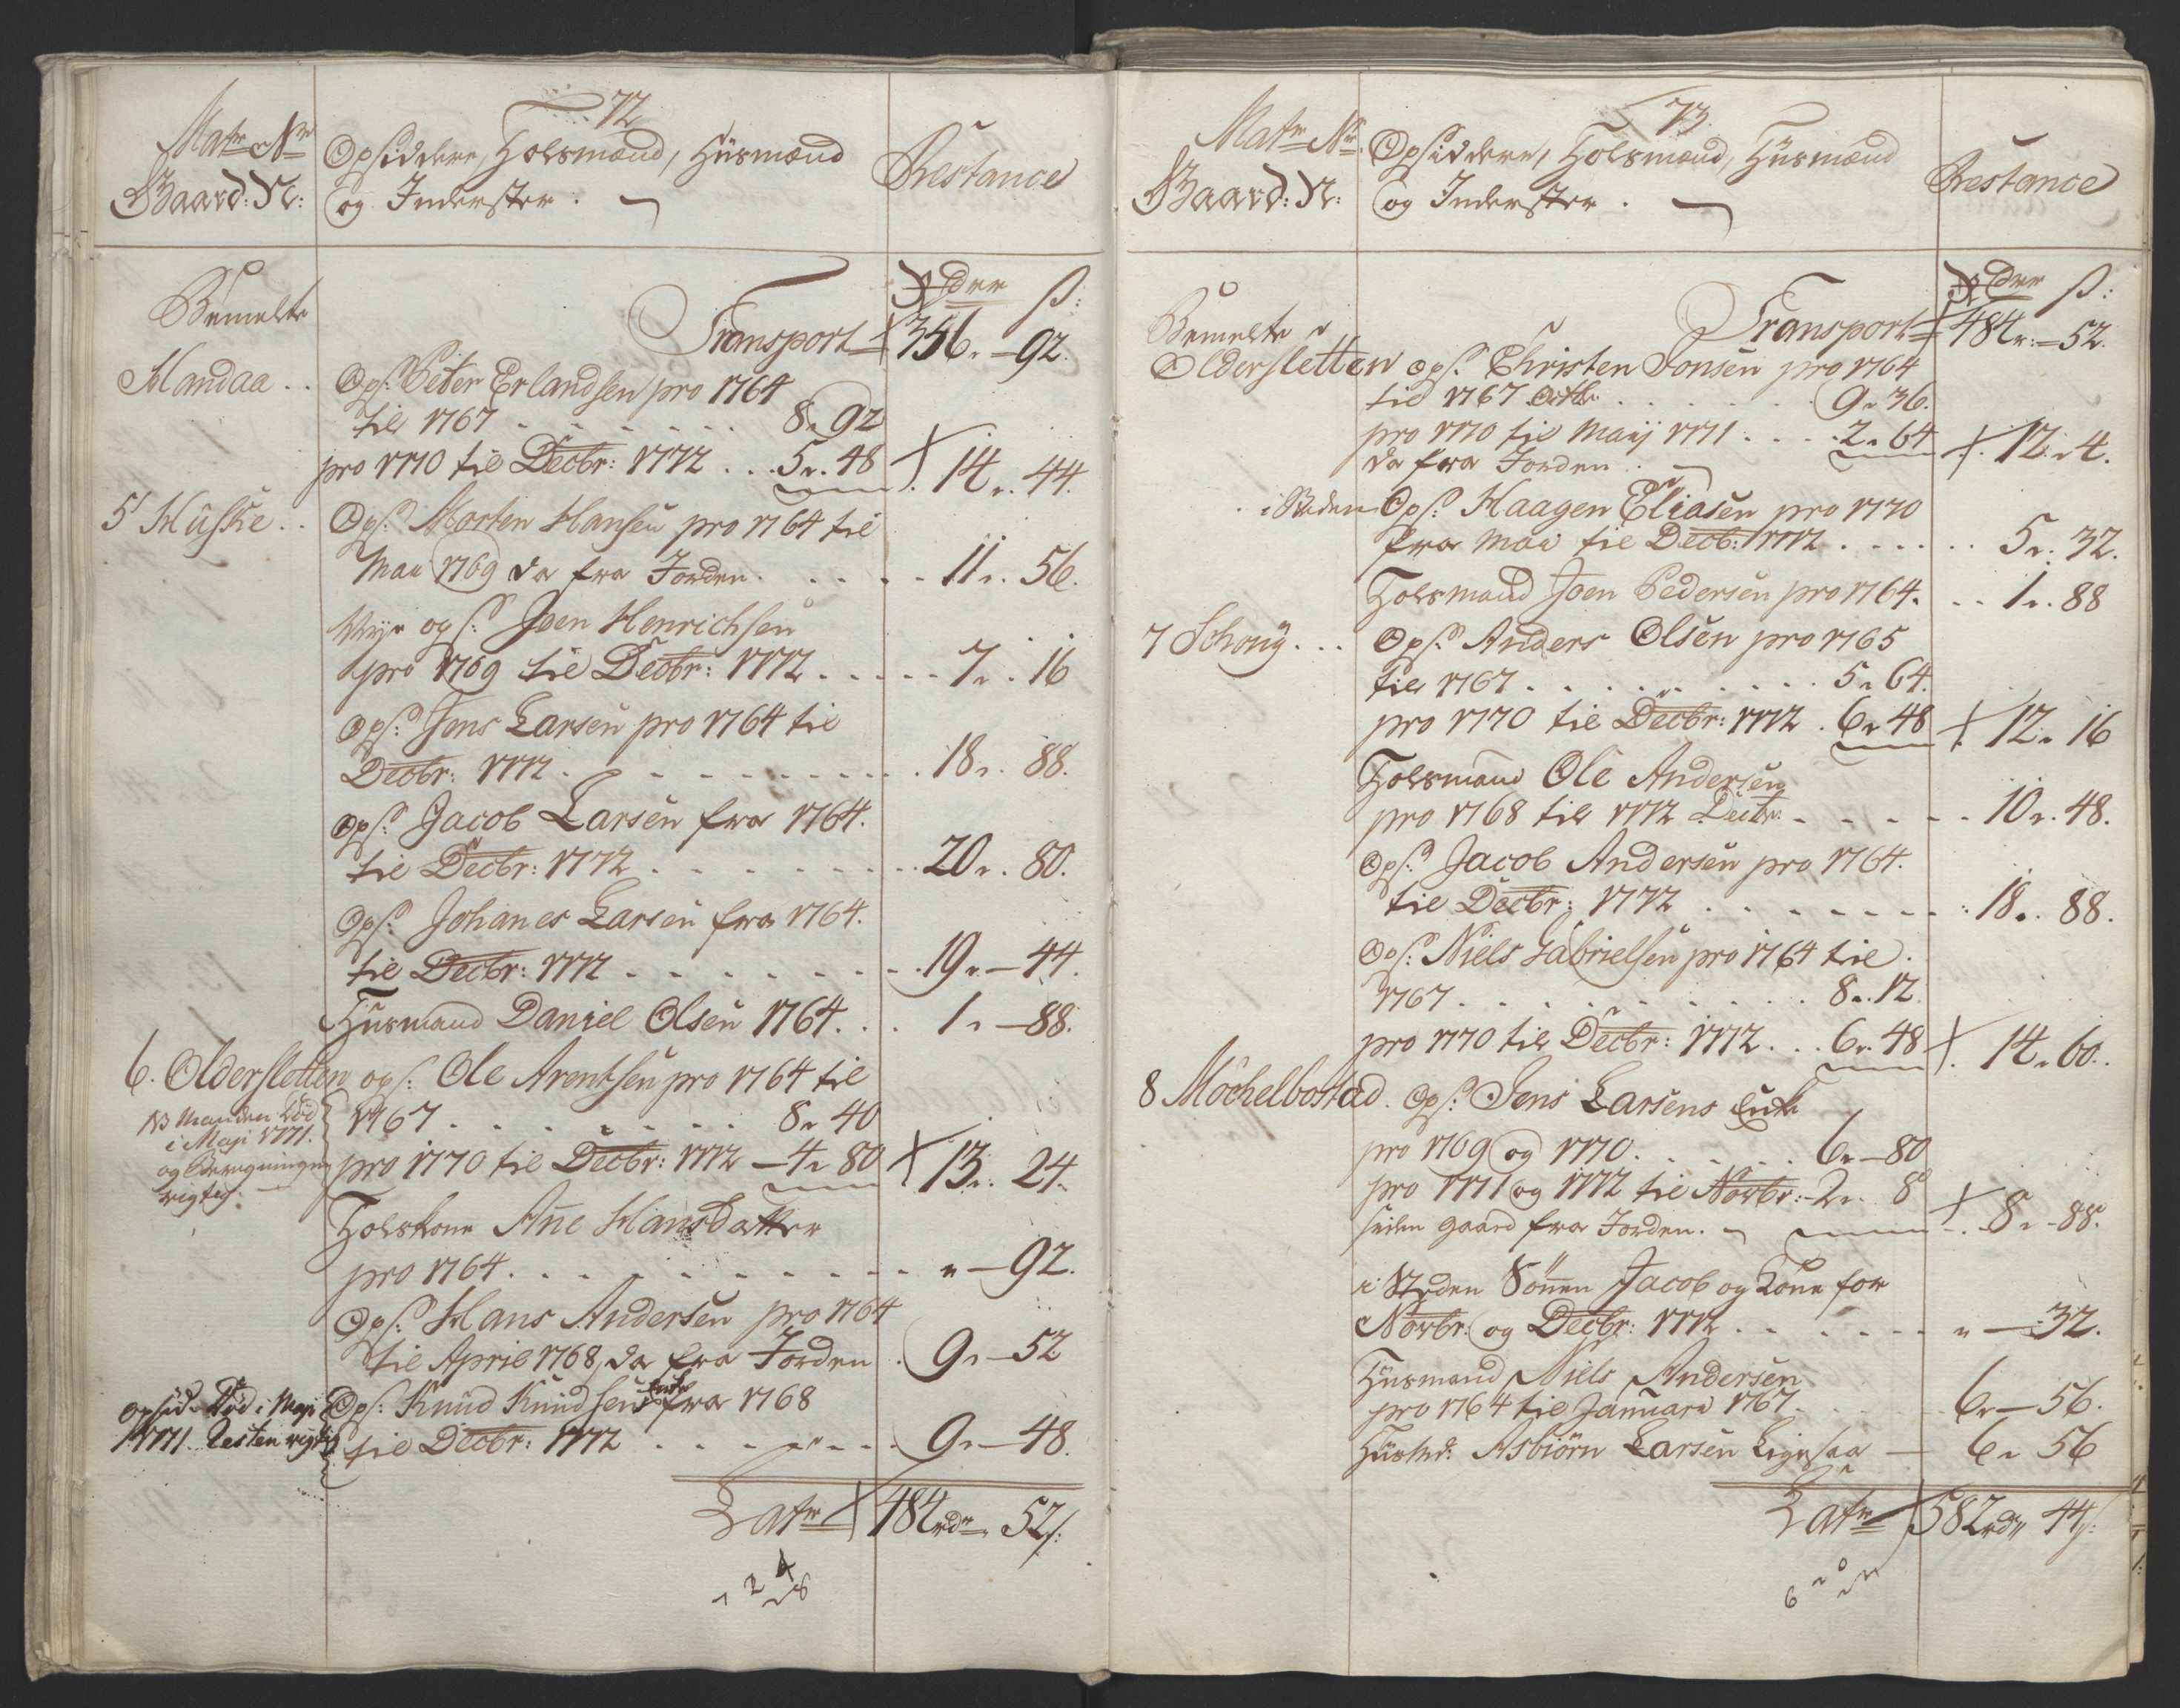 72
Matr Nr
Gaard: N:
Opsiddere, Holsmænd, Huusmænd
og Inderster.
Restance
Rdr ß:
Bemelte
Transport 356. - 92.
Mandaa .. Ops: Peter Erlandsen pro 1764
til 1767 . . . . . . 8. 92
pro 1770 til Decbr: 1772 . . . 5. 48 14. 44.
5 Huske .. Ops: Morten Hansen pro 1764 til
Maii 1769 da fra Jorden . . . . . 11. 56.
Nye ops: Joen Henrichsen
pro 1769 til Decbr: 1772 . . . . . 7. 16
Ops: Jens Larsen pro 1764 til
Decbr: 1772 . . . . . . . . 18. 88.
Ops: Jacob Larsen fra 1764.
til Decbr: 1772 . . . . . . . 20. 80.
Ops: Johanes Larsen fra 1764.
til Decbr: 1772 . . . . . . . 19. - 44.
Huusmand Daniel Olsen 1764 . . . 1. - 88.
6. Oldersletten ops: Ole Arentsen pro 1764 til
NB Manden Død
i Maji 1771.
og Beregningen
rigtig.
1767 . . . . . . . 8. 40
pro 1770 til Decbr: 1772 - 4. 80 13. 24.
Holskone Ane Hansdatter
pro 1764 . . . . . . . . . . " - 92.
Ops: Hans Andersen pro 1764
til April 1768, da fra Jorden . 9. - 52
opsid. Død i Maji
1771. Resten rigtig
Ops: Knud Knudsens Enke fra 1768
til Decbr: 1772 . . . . . . . 9. - 48.
Latr 484 rdr 52 ß:
73.
Matr Nr
Gaard: N:
Opsiddere, Holsmænd, Huusmænd
og Inderster.
Restance
Rdr ß:
Bemelte
Transport 484. - 52.
Oldersletten ops: Christen Jonsen pro 1764
til 1767 . . . . . . 9. 36.
pro 1770 til Maij 1771 . . . . 2. 64 12. 4.
da fra Jorden .
i Steden Ops: Haagen Eliasen pro 1770
fra Mai til Decb: 1772 . . . . . . 5. 32.
Holsmand Joen Pedersen pro 1764 . . . 1. 88
7 Schoug ... Ops: Anders Olsen pro 1765
til 1767 . . . . . . . . . 5. 64.
pro 1770 til Decbr: 1772 . 6. 48 12. 16
Holsmand Ole Andersen
pro 1768 til 1772 Decbr. . . . . . 10. 48.
Ops: Jacob Andersen pro 1764.
til Decbr: 1772 . . . . . . . . 18. 88.
Ops: Niels Gabrielsen pro 1764 til
1767 . . . . . . . . . . 8. 12.
pro 1770 til Decbr: 1772 . . . 6. 48 14. 60.
8 Möchelbostad. Ops: Jens Larsens Enke
pro 1769 og 1770 . . . . . . 6. - 80
pro 1771 og 1772 til Novbr: - 2. 8
siden gaaed fra Jorden. 8. - 88.
i Steden Sönnen Jacob og Kone for
Novbr: og Decbr: 1772 . . . . . . . " - 32.
Huusmand Niels Andersen
pro 1764 til Januari 1767 . . . . 6. - 56.
Huusmd: Asbiörn Larsen Ligesaa - 6. 56
Latr 582 rdr 44 ß: